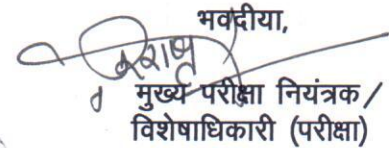 भवदीया,
मुख्य परीक्षा नियंत्रक/
विशेषाधिकारी (परीक्षा)